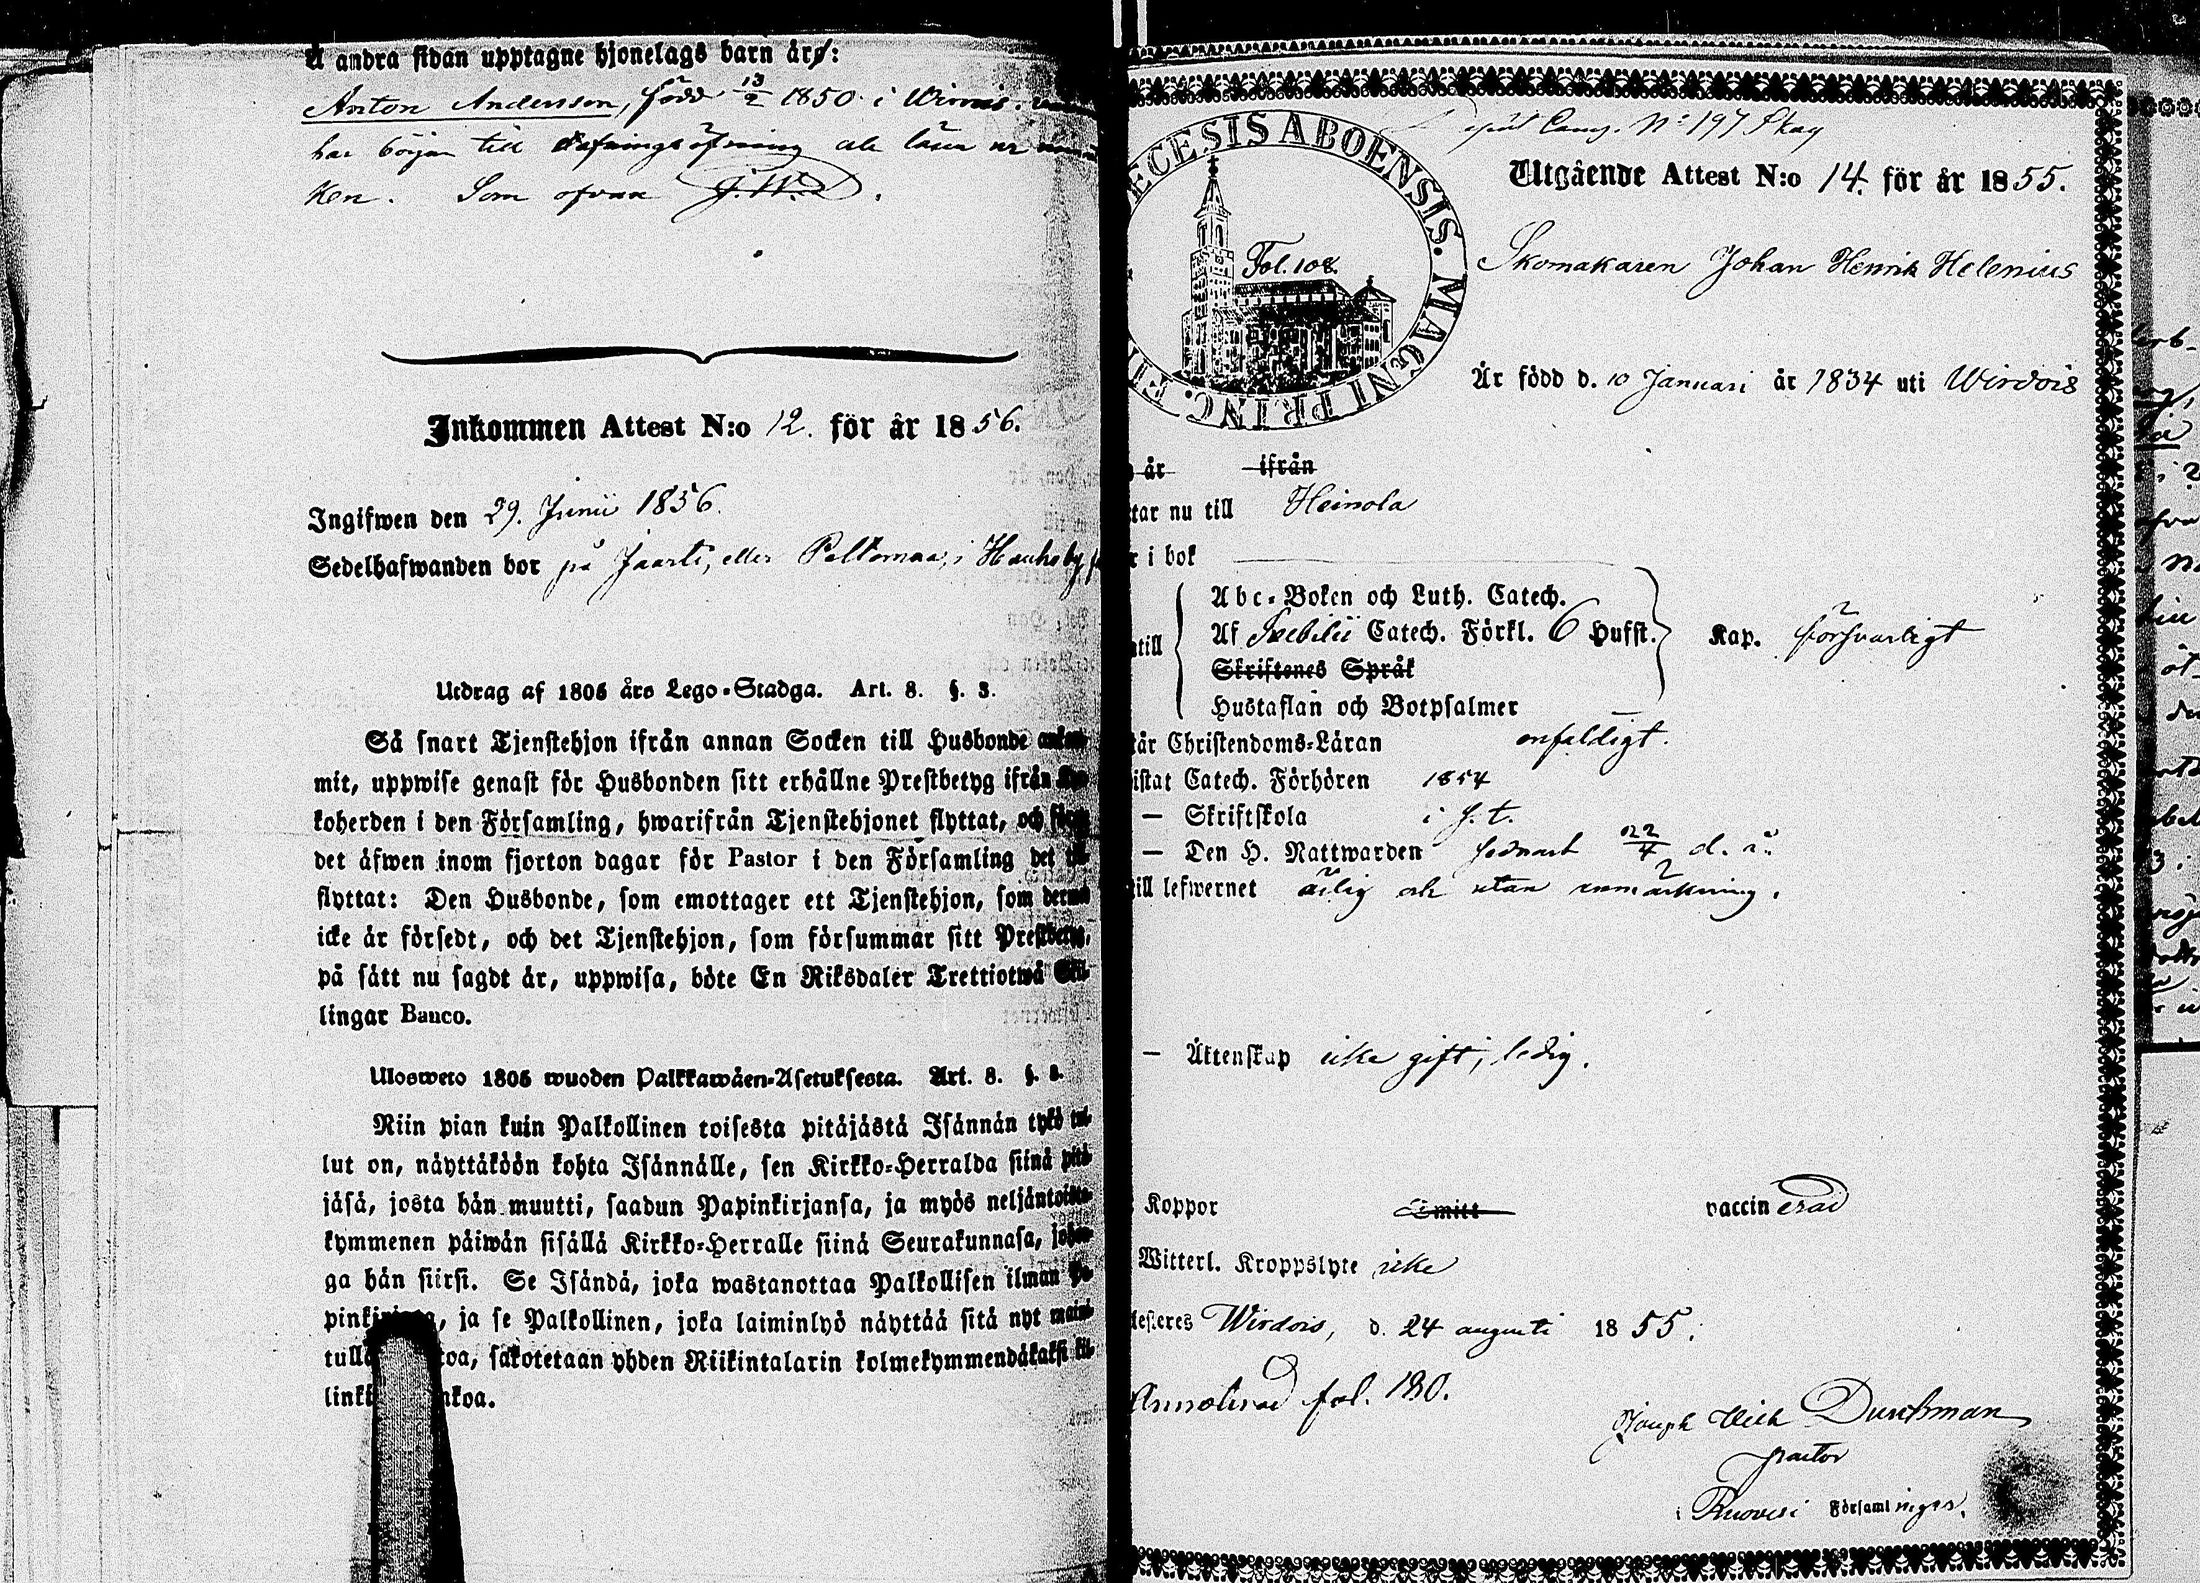 å andra sidan upptagne hjonelags barn äro:
Anton Andersson, född 13/2 1850 i Wirdois
har börjat till stafningsöfning och läser ur
ken. Som ofvan J.W.D.
Inkommen Attest N:o 12. för år 1856.
Ingifwen den 29. Junii 1856.
Sedelhafwanden bor på Jaarti, eller Peltomaa, i Hauhoby
Utdrag af 1805 års Lego-Stadga. Art. 8. §. 3.
Så snart Tjenstehjon ifrån annan Socken till Husbonde ankom-
mit, uppwise genast för Husbonden sitt erhållne Prestbetyg ifrån Kyr-
koherden i den Församling, hwarifrån Tjenstehjonet flyttat, och före
det äfwen inom fjorton dagar för Pastor i den Församling det till-
flyttat: Den Husbonde, som emottager ett Tjenstehjon, som dermed
icke är försedt, och det Tjenstehjon, som försummar sitt Prestbetyg,
på sätt nu sagdt är, uppwisa, böte En Riksdaler Trettiotwå Skil-
lingar Banco.
Ulosweto 1805 wuoden Palkkawäen-Asetuksesta. Art. 8. §. 3.
Niin pian kuin Palkollinen toisesta pitäjästä Isännän tykö tul-
lut on, näyttäköön kohta Isännälle, sen Kirkko-Herralda siinä pitä-
jäsä, josta hän muutti, saadun Papinkirjansa, ja myös neljäntoista-
kymmenen päiwän sisällä Kirkko-Herralle siinä Seurakunnasa, johon-
ga hän siirsi. Se Isändä, joka wastanottaa Palkollisen ilman Pa-
pinkirjata, ja se Palkollinen, joka laiminlyö näyttää sitä nyt maini-
tulla koa, sakotetaan yhden Riikintalarin kolmekymmendäkaksi kil-
linki nkoa.
ECESIS ABOENSIS. MAGNI PRINC. FI
Fol. 108.
Comm. N:o 197 Skog
Utgående Attest N:o 14. för år 1855.
Skomakaren Johan Henrik Helenius
Är född d. 10 Januari år 1834 uti Wirdois
år ifrån
tar nu till Heinola
r i bok
Abc-Boken och Luth. Catech.
till Af Svebilii Catech. Förkl. 6 Hufst. Kap. försvarligt
Skriftenes Språk
Hustaflan och Botpsalmer
tår Christendoms-Läran enfaldigt.
istat Catech. Förhören 1854
— Skriftskola i s. t.
— Den H. Nattwarden sednast 22/4 d. å.
till lefwernet ärlig och utan anmärkning.
— Äktenskap icke gift, ledig.
Koppor Smitt vaccinerad
Witterl. Kroppslyte icke
testeres Wirdois, d. 24 augusti 1855.
Annoterad fol. 130.
Joseph Wilh Durchman
pastor
i Ruovesi Församlingar.